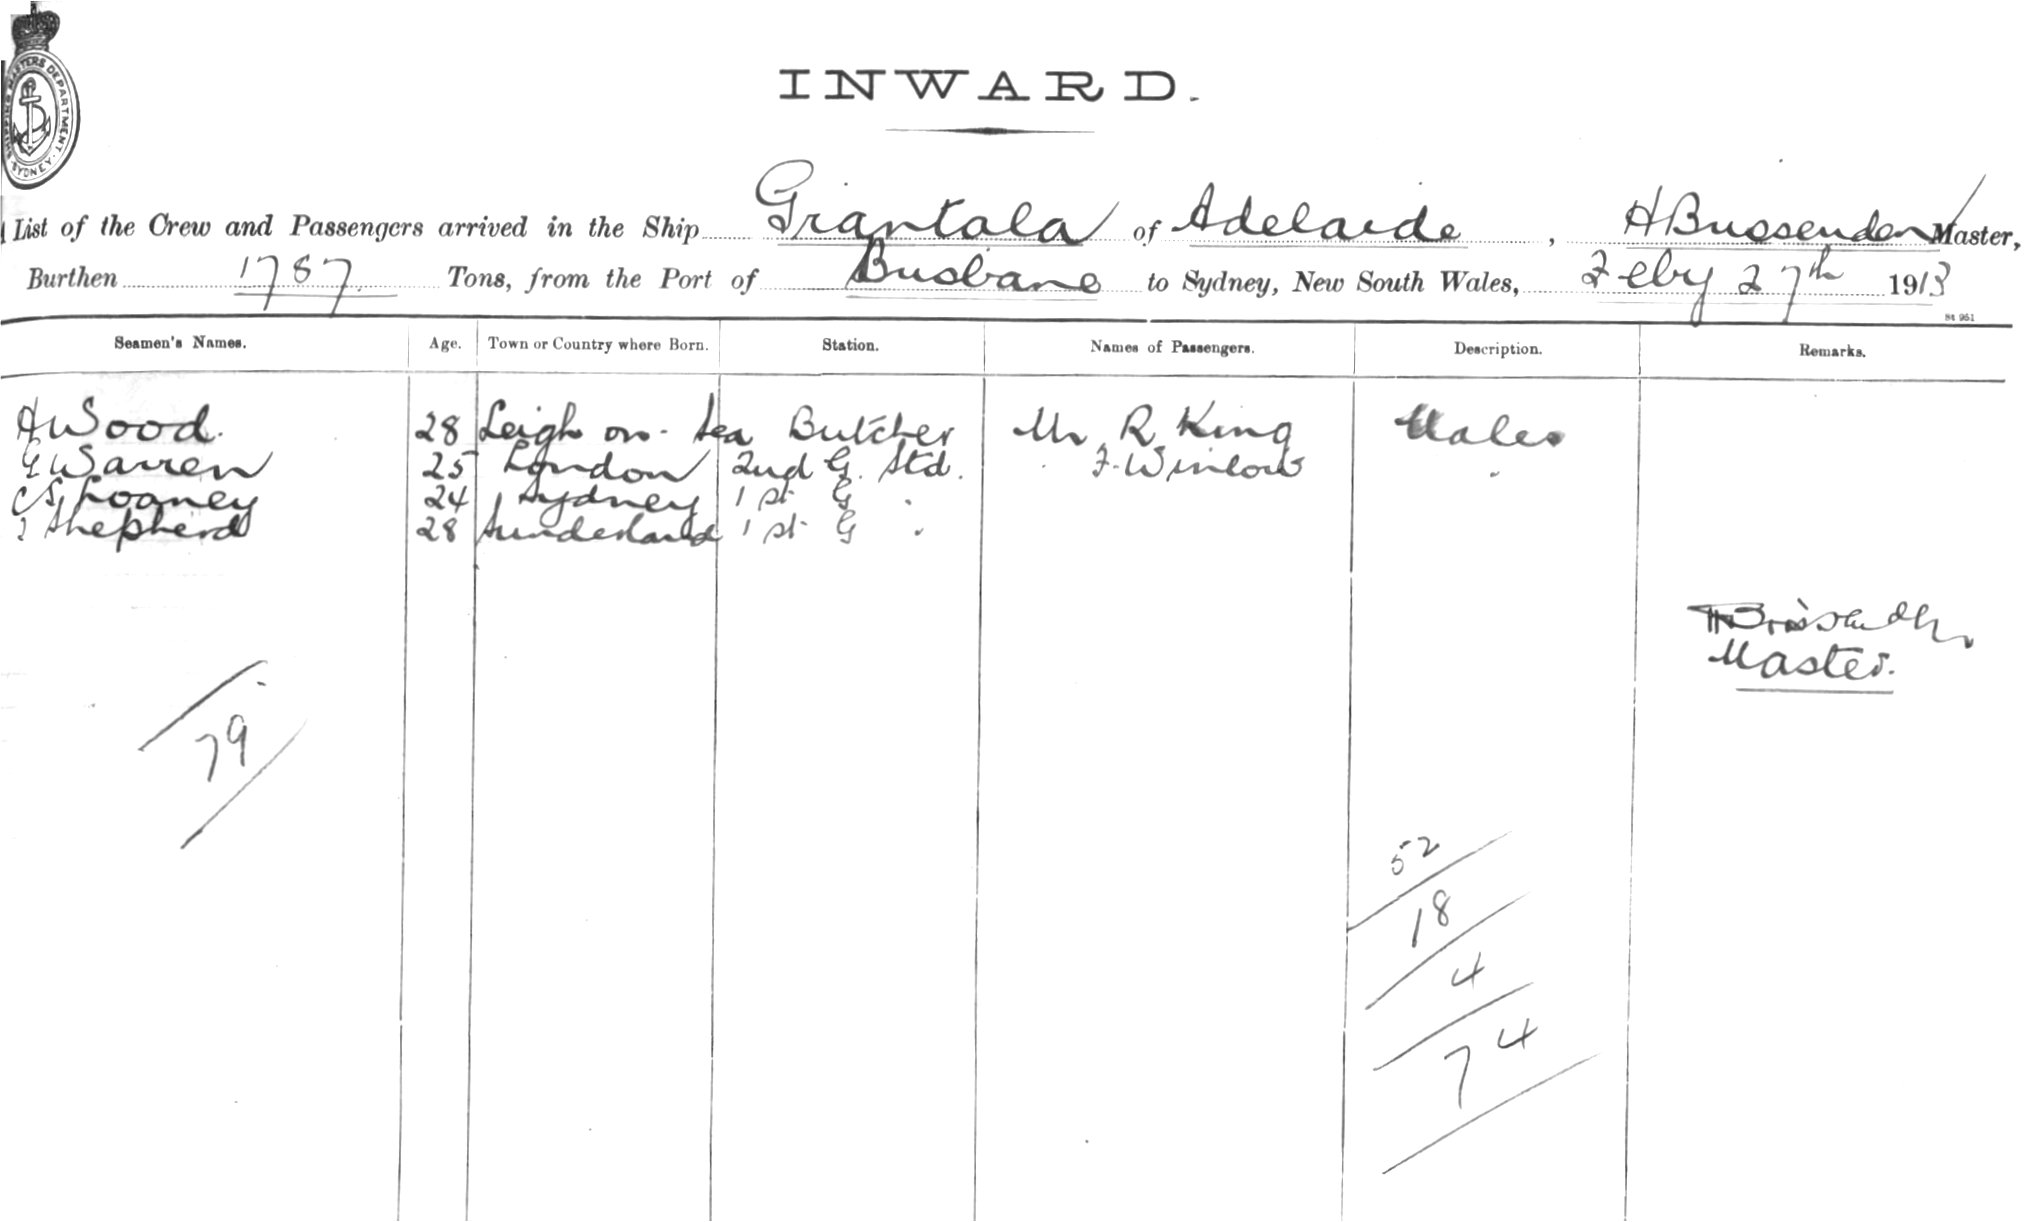 SHIPPING MASTERS DEPARTMENT. SYDNEY.
INWARD.
List of the Crew and Passengers arrived in the Ship Grantala of Adelaide, H Brissenden Master,
Burthen 1787 Tons, from the Port of Brisbane to Sydney, New South Wales, Feby 27th 1913
St 951
Seamen's Names. Age. Town or Country where Born. Station. Names of Passengers. Description. Remarks.
H Wood. 28 Leigh on-Sea Butcher Mr R King Males
G Warren 25 London 2nd G. Std. F. Winlow "
C S 24 Sydney 1st G "
Shepherd 28 Sunderland 1st G "
H Brissenden
Master.
79
52
18
4
74